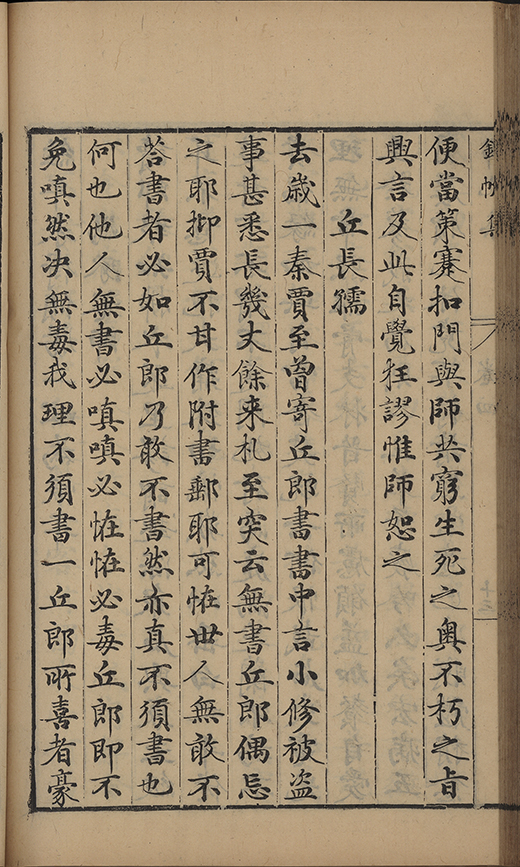 錦帆集 卷四 十三
便當策蹇扣門與師共窮生死之奧不朽之旨
興言及此自覺狂謬惟師恕之
丘長孺
去歳一秦賈至曾寄丘郎書書中言小修被盜
事甚悉長幾丈餘来札至突云無書丘郎偶忘
之耶抑賈不甘作附書郵耶可恠世人無敢不
荅書者必如丘郎乃敢不書然亦真不須書也
何也他人無書必嗔嗔必恠恠必毒丘郎即不
免嗔然决無毒我理不須書一丘郎所喜者豪